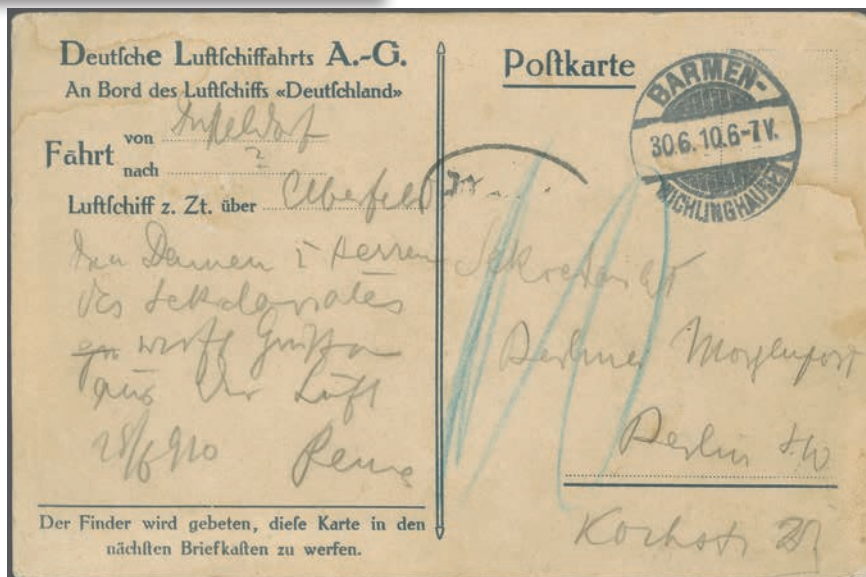 Deutſche Luftſchiffahrts A.-G.
An Bord des Luftſchiffs «Deutſchland»
Fahrt von Düsseldorf
nach ?
Luftſchiff z. Zt. über Elberfeld
den Damen & Herren
des Sekretariates
wirft Grüße
aus der Luft
28/6 910
Der Finder wird gebeten, dieſe Karte in den
nächſten Briefkaſten zu werfen.
Poſtkarte
BARMEN-
30.6.10.6-7V.
WICHLINGHAUSEN
Sekretariat
Berliner Morgenpost
Berlin SW
Kochstr